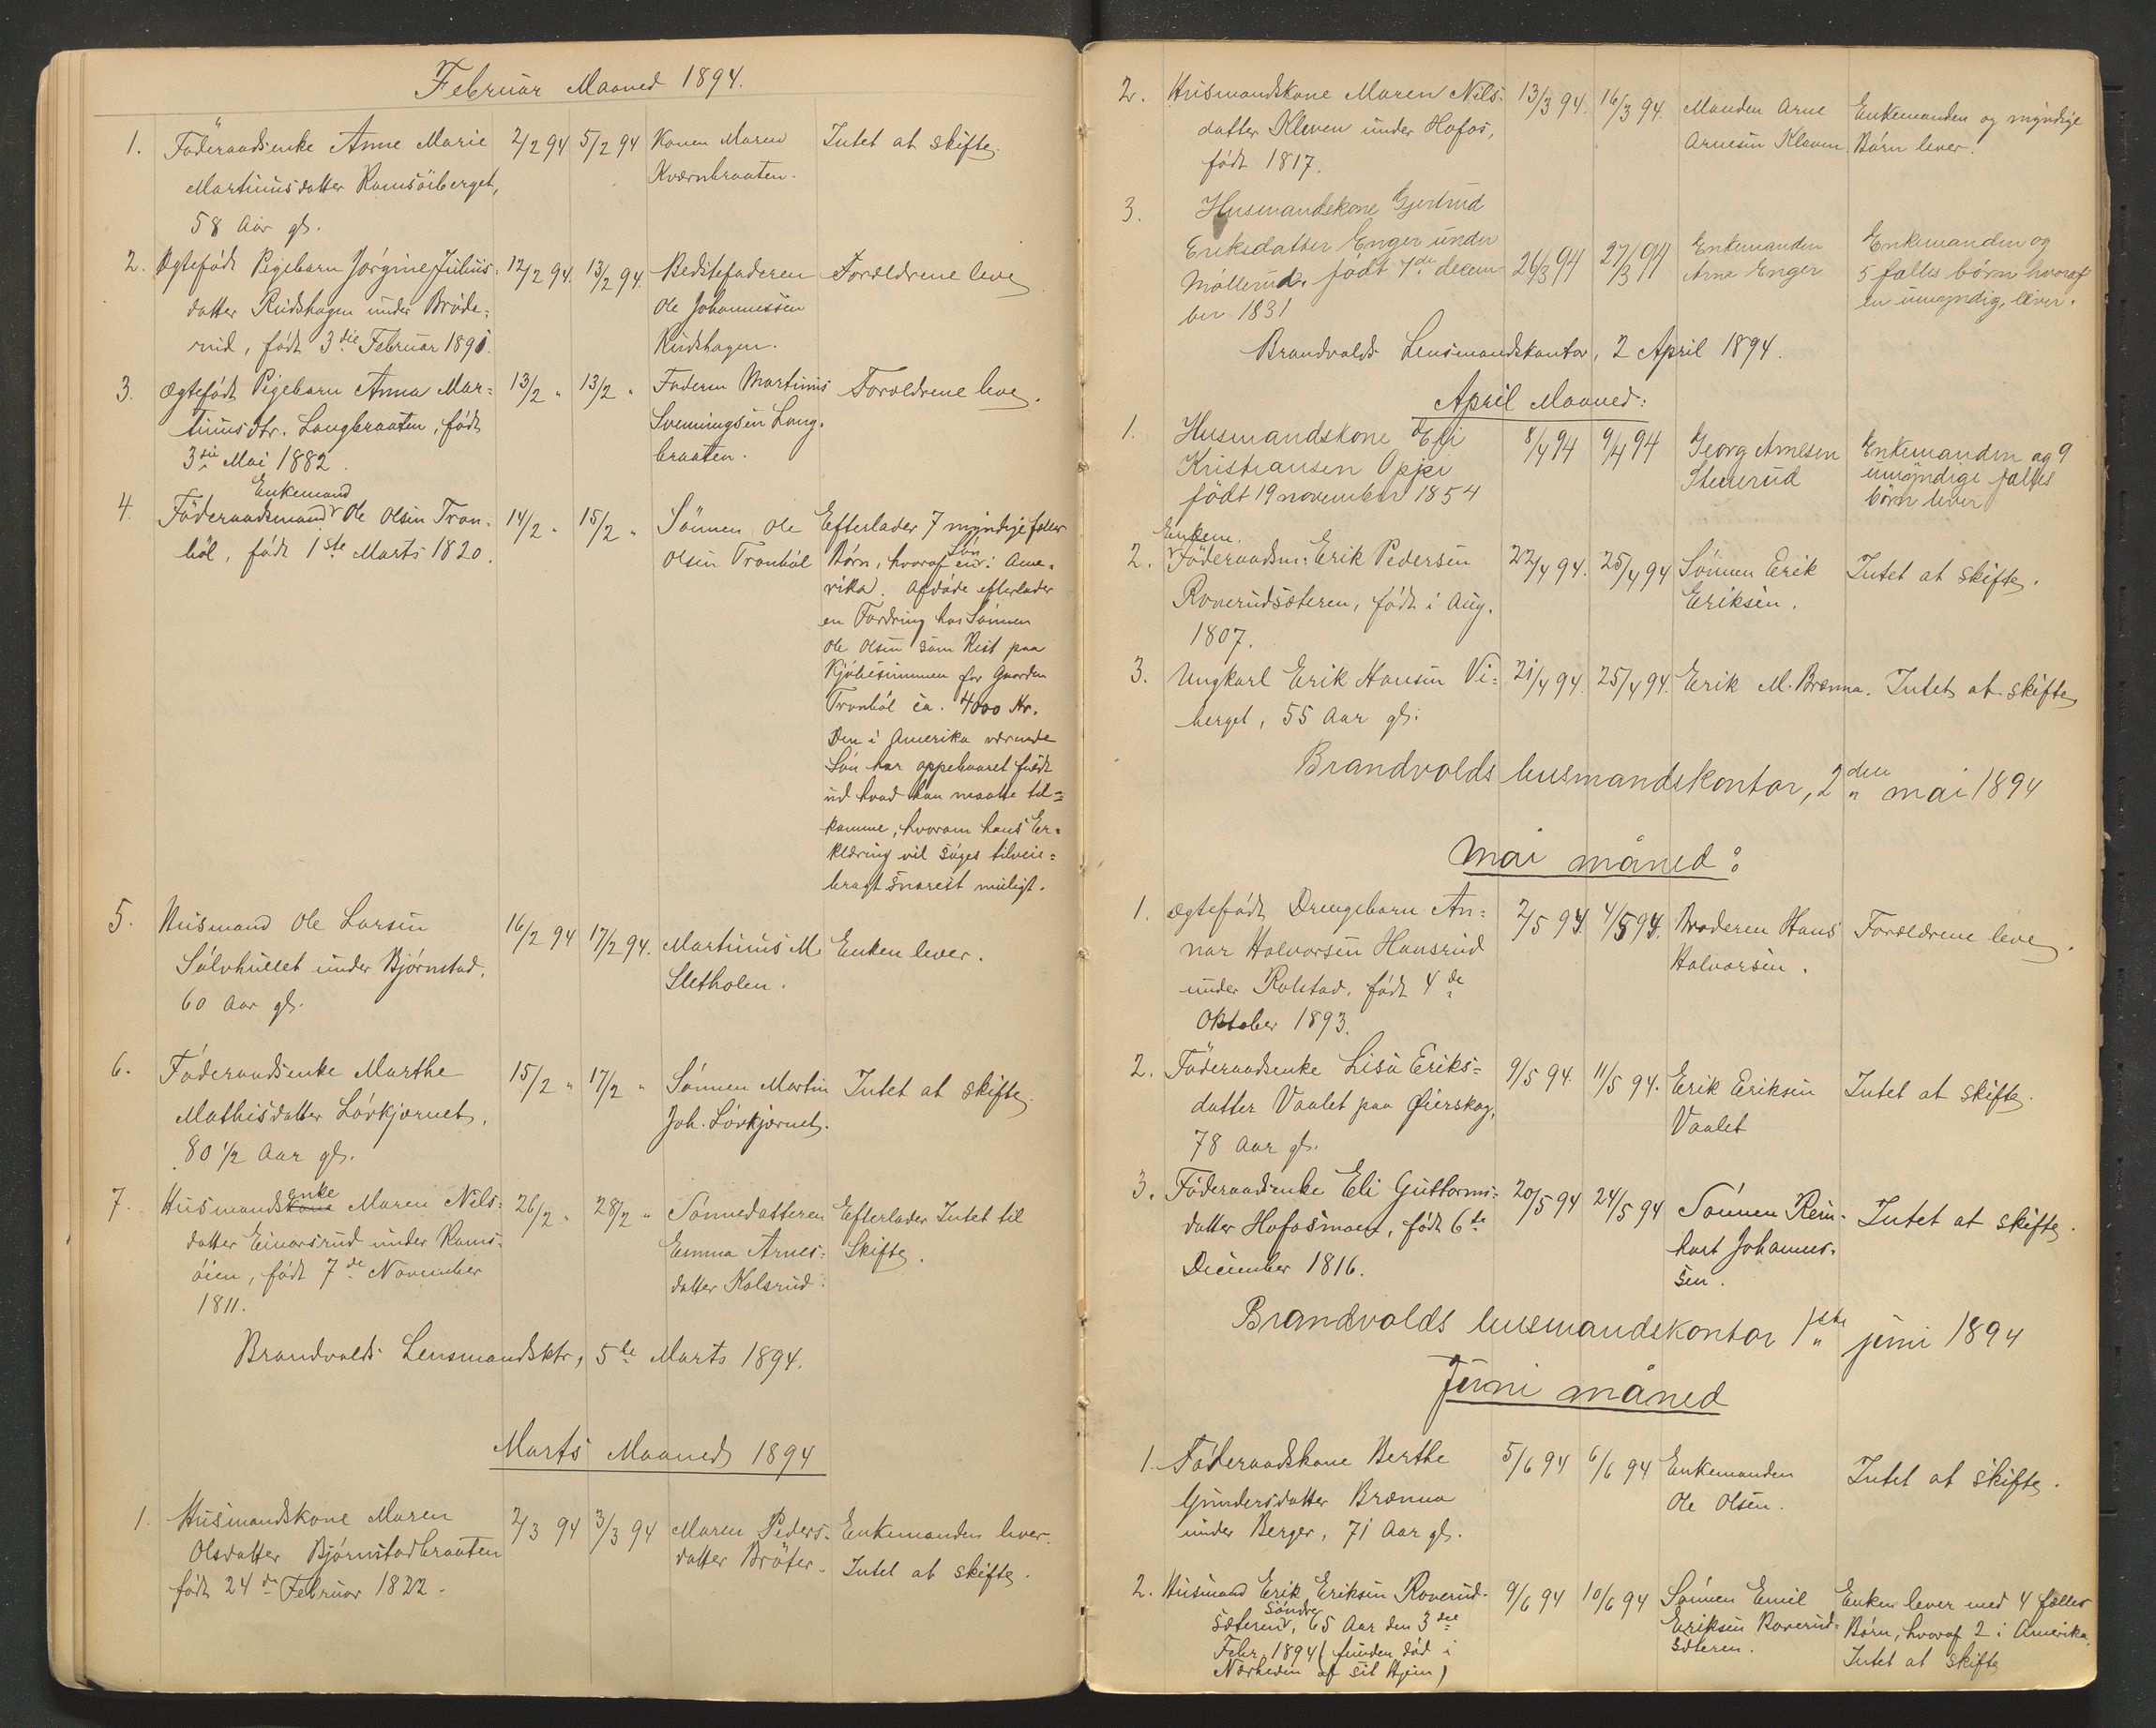 Februar Maaned 1894.
1. Föderaadsenke Anne Marie 2/2 94 5/2 94 Konen Maren Intet at skifte.
Martinusdatter Ramsöiberget, Kværnbraaten.
58 Aar gl.
2. Ægtefødt Pigebarn Jørgine Julius- 12/2 94. 13/2 94. Bedstefaderen Forældrene leve
datter Rudshagen under Bröde- Ole Johannessen
rud, født 3die Februar 1891. Rudshagen.
3. Ægtefødt Pigebarn Anna Mar- 13/2 " 13/2 " Faderen Martinus Forældrene leve.
tinusdtr. Langbraaten, født Svenningsen Lang-
3die Mai 1882. braaten.
Enkemand
4. Föderaadsmand Ole Olsen Tron- 14/2 " 15/2 " Sönnen Ole Efterlader 7 myndige fælles
böl, født 1ste Marts 1820. Olsen Tronböl Børn, hvoraf en Sön i Ame-
rika. Afdøde efterlader
en Fordring hos Sönnen
Ole Olsen som Rest paa
Kjöbesummen for Gaarden
Tronböl ca. 4000 Kr.
Den i Amerika værende
Sön har oppebaaret fuldt
ud hvad han maatte til-
komme, hvorom hans Er-
klæring vil søges tilveie-
bragt snarest muligt.
5. Husmand Ole Larsen 16/2 94 17/2 94. Martinus M. Enken lever.
Sölvhullet under Bjørnstad, Sletholen.
60 Aar gl.
6. Føderaadsenke Marthe 15/2 " 17/2 " Sønnen Martin Intet at skifte.
Mathisdatter Lövkjærnet, Joh. Lövkjærnet.
80 1/2 Aar gl.
enke
7. Husmandskone Maren Nils- 26/2 " 28/2 " Sønnedatteren Efterlader Intet til
datter Einarsrud under Rams- Emma Arnes- Skifte.
öien, født 7de November datter Kolsrud.
1811.
Brandvolds Lensmandsktr, 5te Marts 1894.
Marts Maaned 1894
1. Husmandskone Maren 2/3 94 3/3 94 Maren Peders- Enkemanden lever.
Olsdatter Bjørnstadbraaten datter Bröter. Intet at skifte.
født 24de Februar 1822.
2. Husmandskone Maren Nils- 13/3 94. 16/3 94. Manden Arne Enkemanden og myndige
datter Kleven under Hofos, Arnesen Kleven Børn lever.
født 1817.
3. Husmandskone Gjertrud
Eriksdatter Enger under 26/3 94 27/3 94 Enkemanden Enkemanden og
Møllerud. født 7de decem- Arne Enger 5 fælles børn hvoraf
ber 1831 en umyndig, lever.
Brandvolds Lensmandskontor, 2 April 1894.
April Maaned:
1. Husmandskone Eli 8/4 94 9/4 94 Georg Arnesen Enkemanden og 9
Kristiansen Oppi Stenerud umyndige fælles
født 19 november 1854 børn lever
Enkem.
2. Föderaadsm. Erik Pedersen 22/4 94. 25/4 94 Sønnen Erik Intet at skifte.
Roverudsæteren, født i Aug. Eriksen.
1807.
3. Ungkarl Erik Hansen Vi- 21/4 94. 25/4 94. Erik M. Brænna. Intet at skifte
berget, 55 Aar gl.
Brandvolds lensmandskontor, 2den mai 1894
Mai måned:
1. Ægtefødt Drengebarn An- 2/5 94. 4/5 94. Broderen Hans Forældrene leve.
nar Halvorsen Hansrud Halvorsen.
under Rolstad, født 4de
Oktober 1893.
2. Föderaadsenke Lisa Eriks- 9/5 94. 11/5 94. Erik Eriksen Intet at skifte.
datter Vaalet paa Øierskog, Vaalet
78 Aar gl.
3. Föderaadsenke Eli Guttorms- 20/5 94 24/5 94 Sønnen Rein- Intet at skifte.
datter Hofosmoen, født 6te hart Johannes-
December 1816. sen.
Brandvolds lensmandskontor 1ste juni 1894
Juni måned
1. Føderaadskone Berthe 5/6 94 6/6 94 Enkemanden Intet at skifte.
Gundersdatter Brænna Ole Olsen.
under Berger, 71 Aar gl.
2. Husmand Erik Eriksen Roverud- 9/6 94 10/6 94 Sønnen Emil Enken lever med 4 fælles
sæteren söndre, 65 Aar den 3die Eriksen Roverud- Børn, hvoraf 2 i Amerika,
Febr. 1894 (funden død i sæteren. Intet at skifte
Nærheden af sit Hjem)